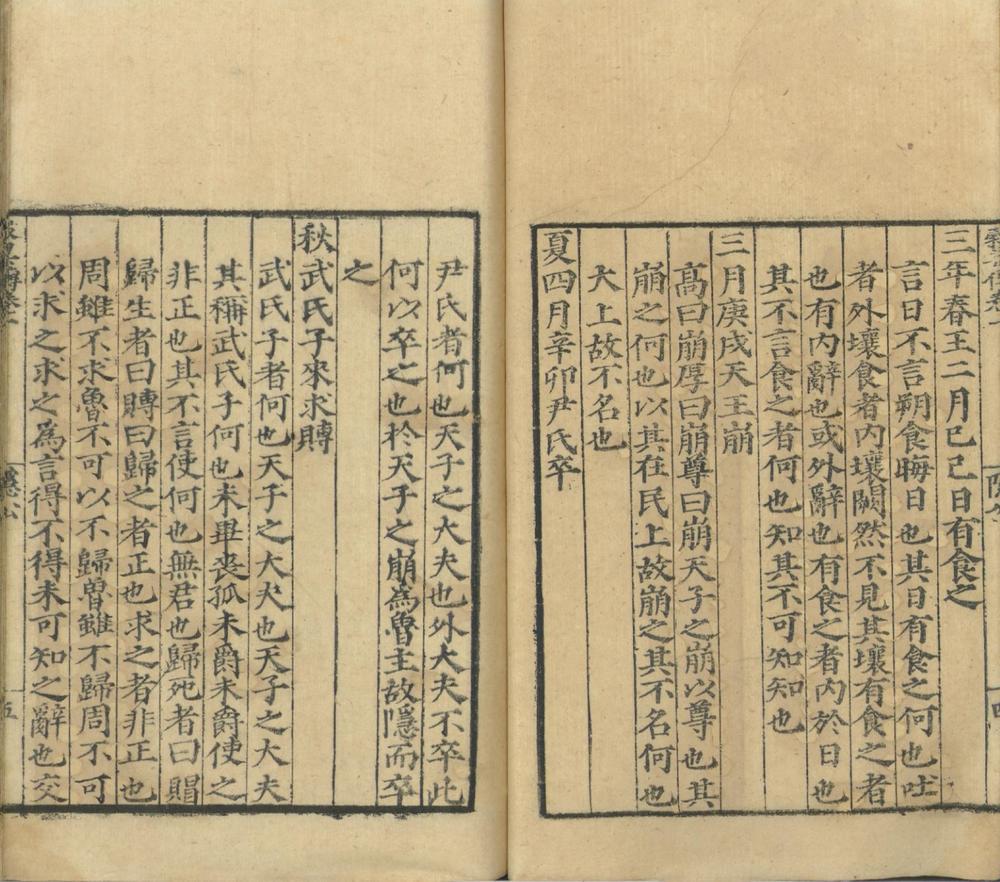 三年春王二月己巳日有食之
言日不言朔食晦日也其日有食之何也吐
者外壤食者内壤闕然不見其壤有食之者
也有内辭也或外辭也有食之者内於日也
其不言食之者何也知其不可知知也
三月庚戌天王崩
高曰崩厚曰崩尊曰崩天子之崩以尊也其
崩之何也以其在民上故崩之其不名何也
大上故不名也
夏四月辛卯尹氏卒
尹氏者何也天子之大夫也外大夫不卒此
何以卒之也於天子之崩為魯主故隱而卒
之
秋武氏子來求賻
武氏子者何也天子之大夫也天子之大夫
其稱武氏子何也未畢喪孤未爵未爵使之
非正也其不言使何也無君也歸死者曰賵
歸生者曰賻曰歸之者正也求之者非正也
周雖不求魯不可以不歸魯雖不歸周不可
以求之求之為言得不得未可知之辭也交
五